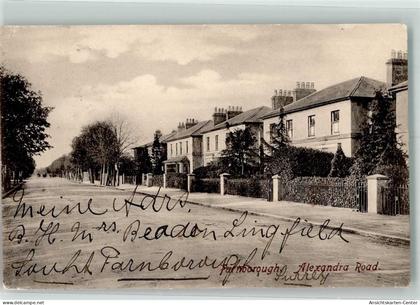 Meine Adrs.
B. H. Mrs. Beadon Lingfield
South Farnborough
Surrey
Farnborough, Alexandra Road.
© www.ansichtskarten-center.de
Ansichtskarten-Center